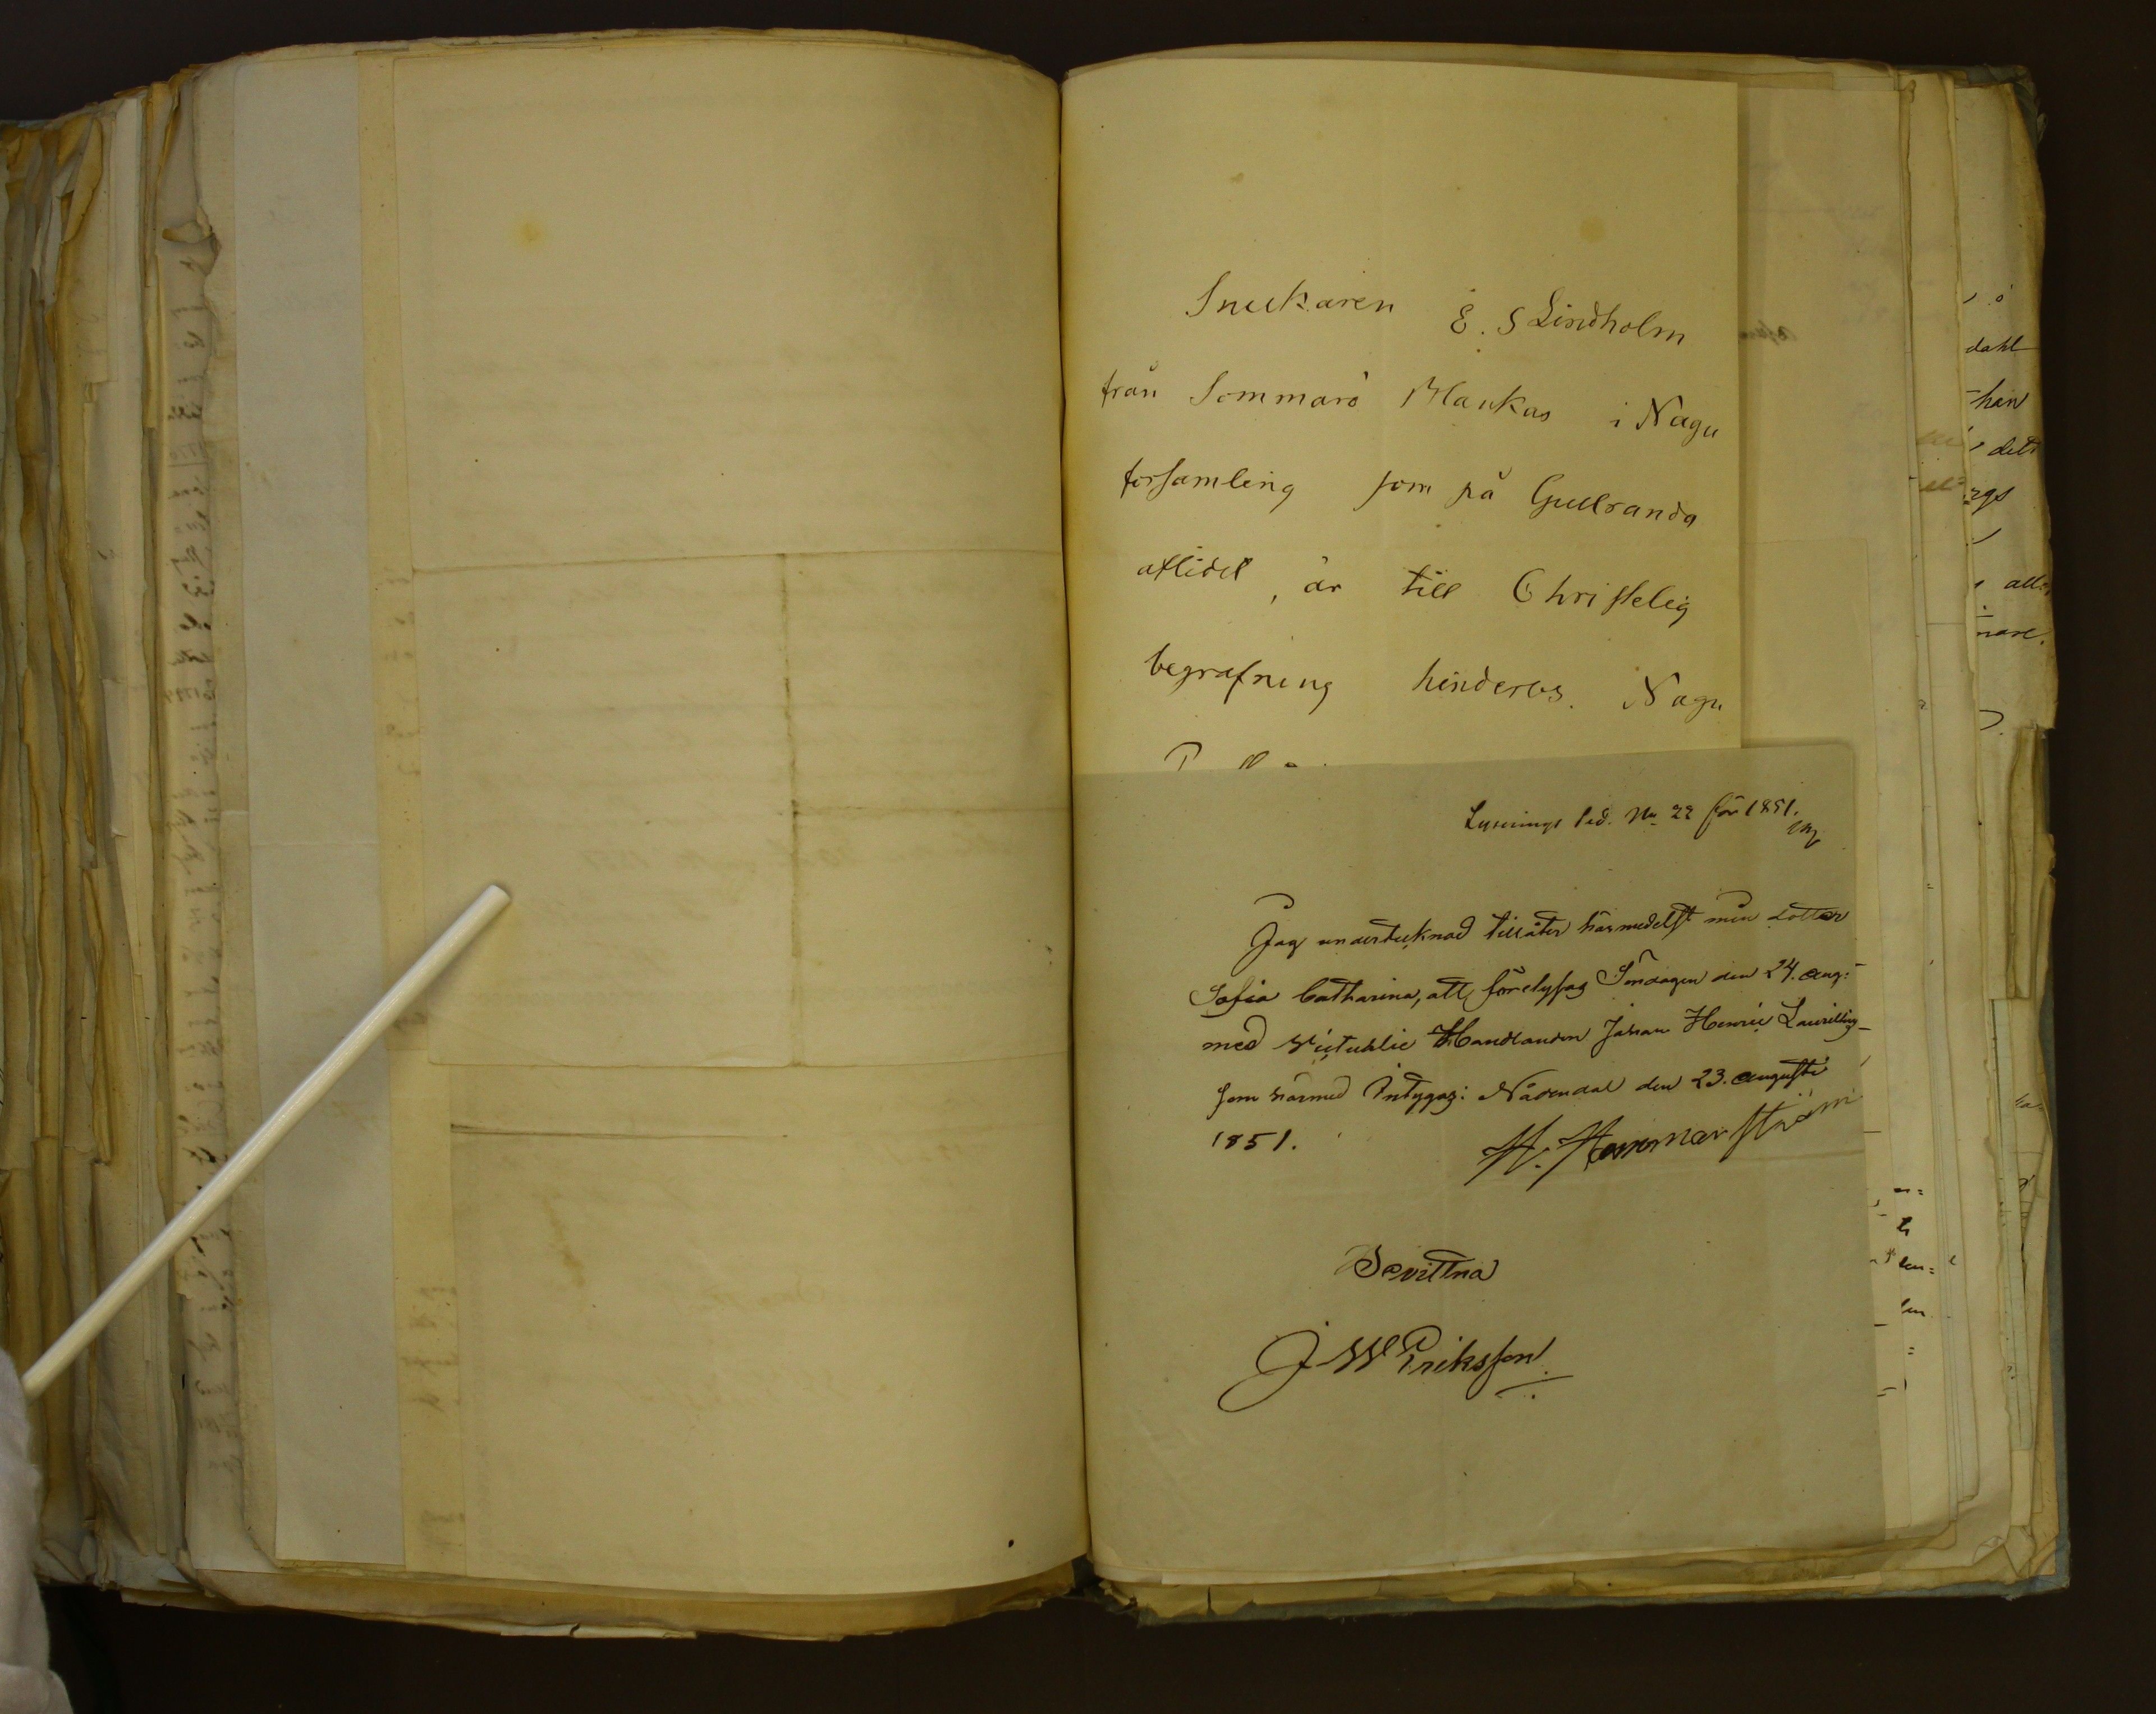 Snickaren E. S Lindholm
från Sommarö Blankas i Nagu
församling som på Gullranda
aflidet, är till Christelig
begrafning hinderlös. Nagu
Lysnings Sed. No 22 för 1851.
Jag undertecknad tillåter härmedelst min dotter
Sofia Catharina, att förelysas Söndagen den 24. Aug:
med Victualie Handlanden Johan Henric
som härmed Intygas: Nådendal den 23. Augusti
1851. H. Hammarström
Bevittna
J W Eriksson
dahl
han
det